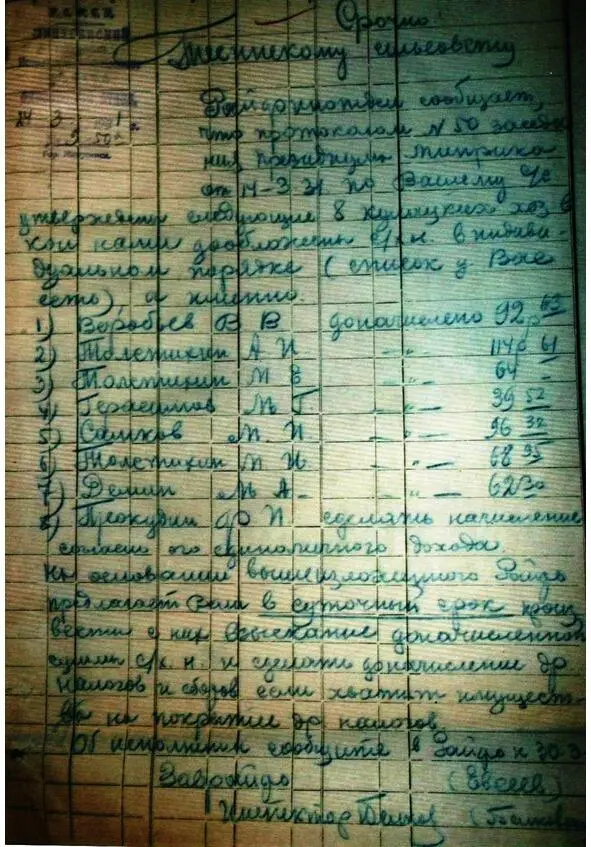 Срочно
сельсовету
Райфинотдел сообщает,
что протоколом N 50 заседа
ния президиума
от 14-3 31 по Вашему с/с
утверждены следующие 8 кулацких хоз в
кои нами дообложены с/х.н. в индиви-
дуальном порядке (список у Вас
есть), а именно.
1) Воробьев В В доначислено 92р 63
2) Толстихин А И -„- 114р 61
3) Толстихин М Е -„- 64 -
4) Герасимов М Г. -„- 39 52
5) М. И -„- 96 32
6) Толстихин М И -„- 68 95
7) Демин М А- -„- 62 30
8) Прокудин И сделать начисление
согласно его единоличного дохода.
На основании вышеизложенного Райфо
предлагает Вам в суточный срок произ
вести с них взыскание доначисленной
суммы с/х. н. и сделать доначисление др
налогов и сборов если хватит имущест-
ва на покрытие др налогов.
Об исполнении сообщите в Райфо к 30-3
Заврайфо (Евсеев)
Инспектор